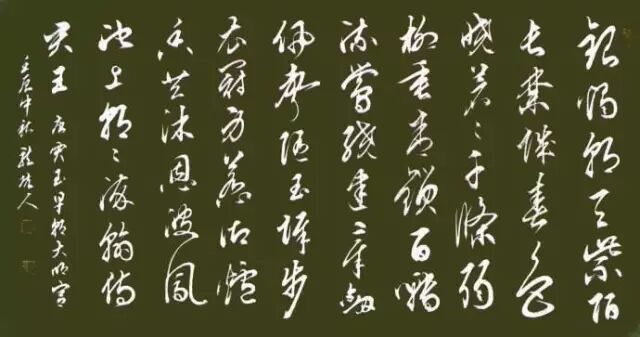 銀燭朝天紫陌
長禁城春色
曉蒼々千條弱
柳垂青鎖百囀
流鶯繞建章劍
佩聲隨玉墀步
衣冠身惹御爐
香共沐恩波鳳
池上朝々染翰侍
君王 唐賈至早朝大明宮
壬辰中秋龍人